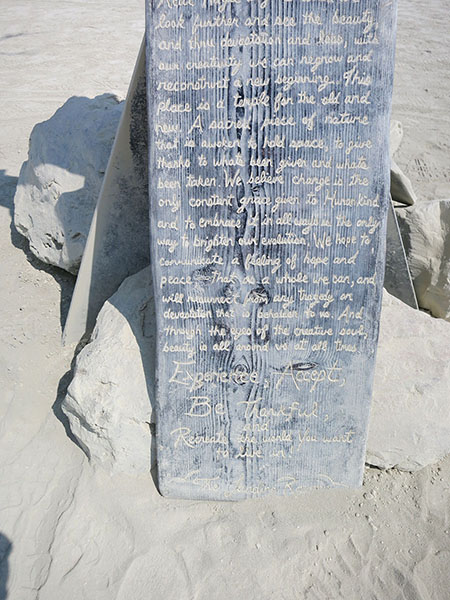 look further and see the beauty
and thru devastation and loss, with
our creativity we can regrow and
reconstruct a new beginning. This
place is a temple for the old and
new. A sacred piece of nature
that is awoken to hold space, to give
thanks to whats been given and whats
been taken. We believe change is the
only constant given to Humankind
and to embrace it in all ways is the only
way to brighten our evolution. We hope to
communicate a feeling of hope and
peace that as a whole we can, and
will resurrect from any tragedy or
devastation that is to us. And
through the eyes of the creative soul,
beauty is all around us at all times.
Experience, Accept,
Be Thankful,
and
Recreate the world you want
to live in.